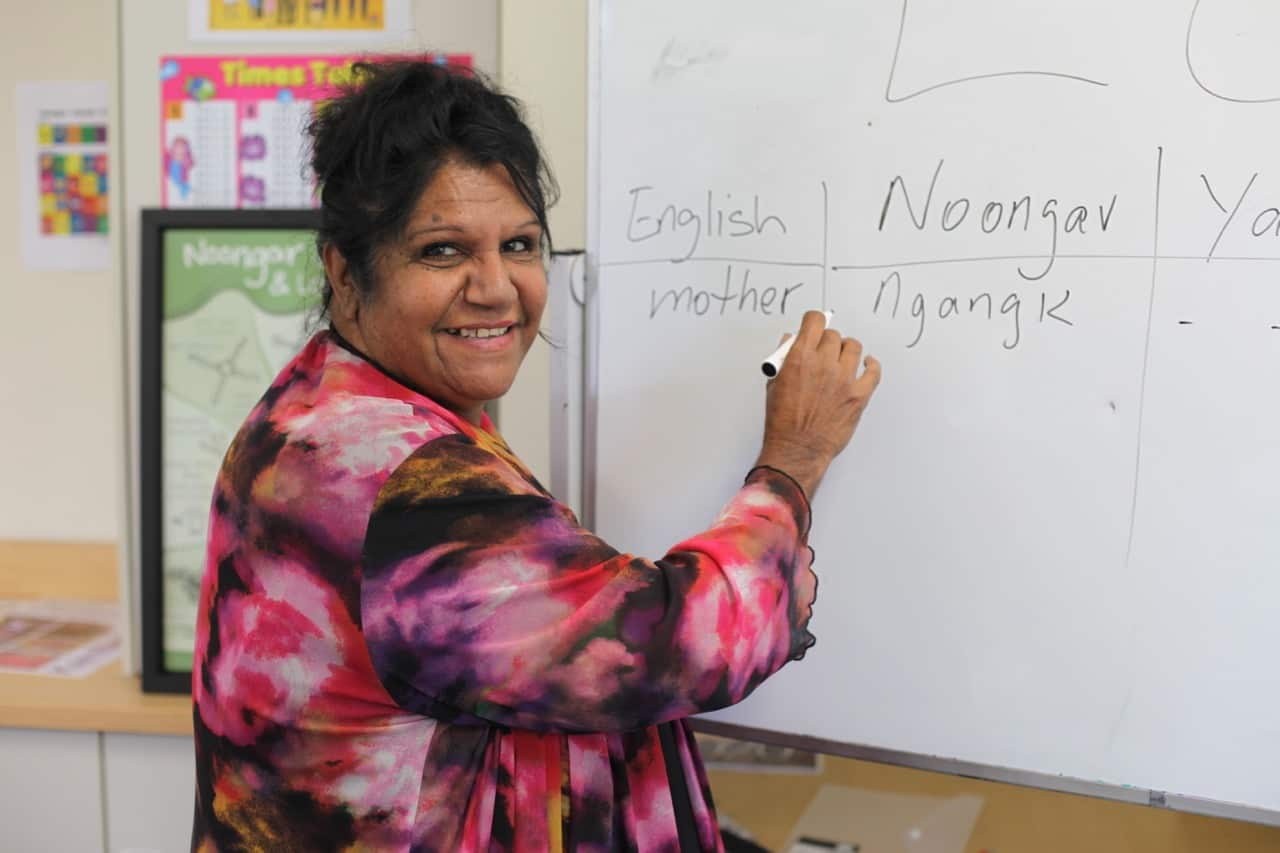 Times
Noongar
&
English Noongar Ya
mother ngangk - -